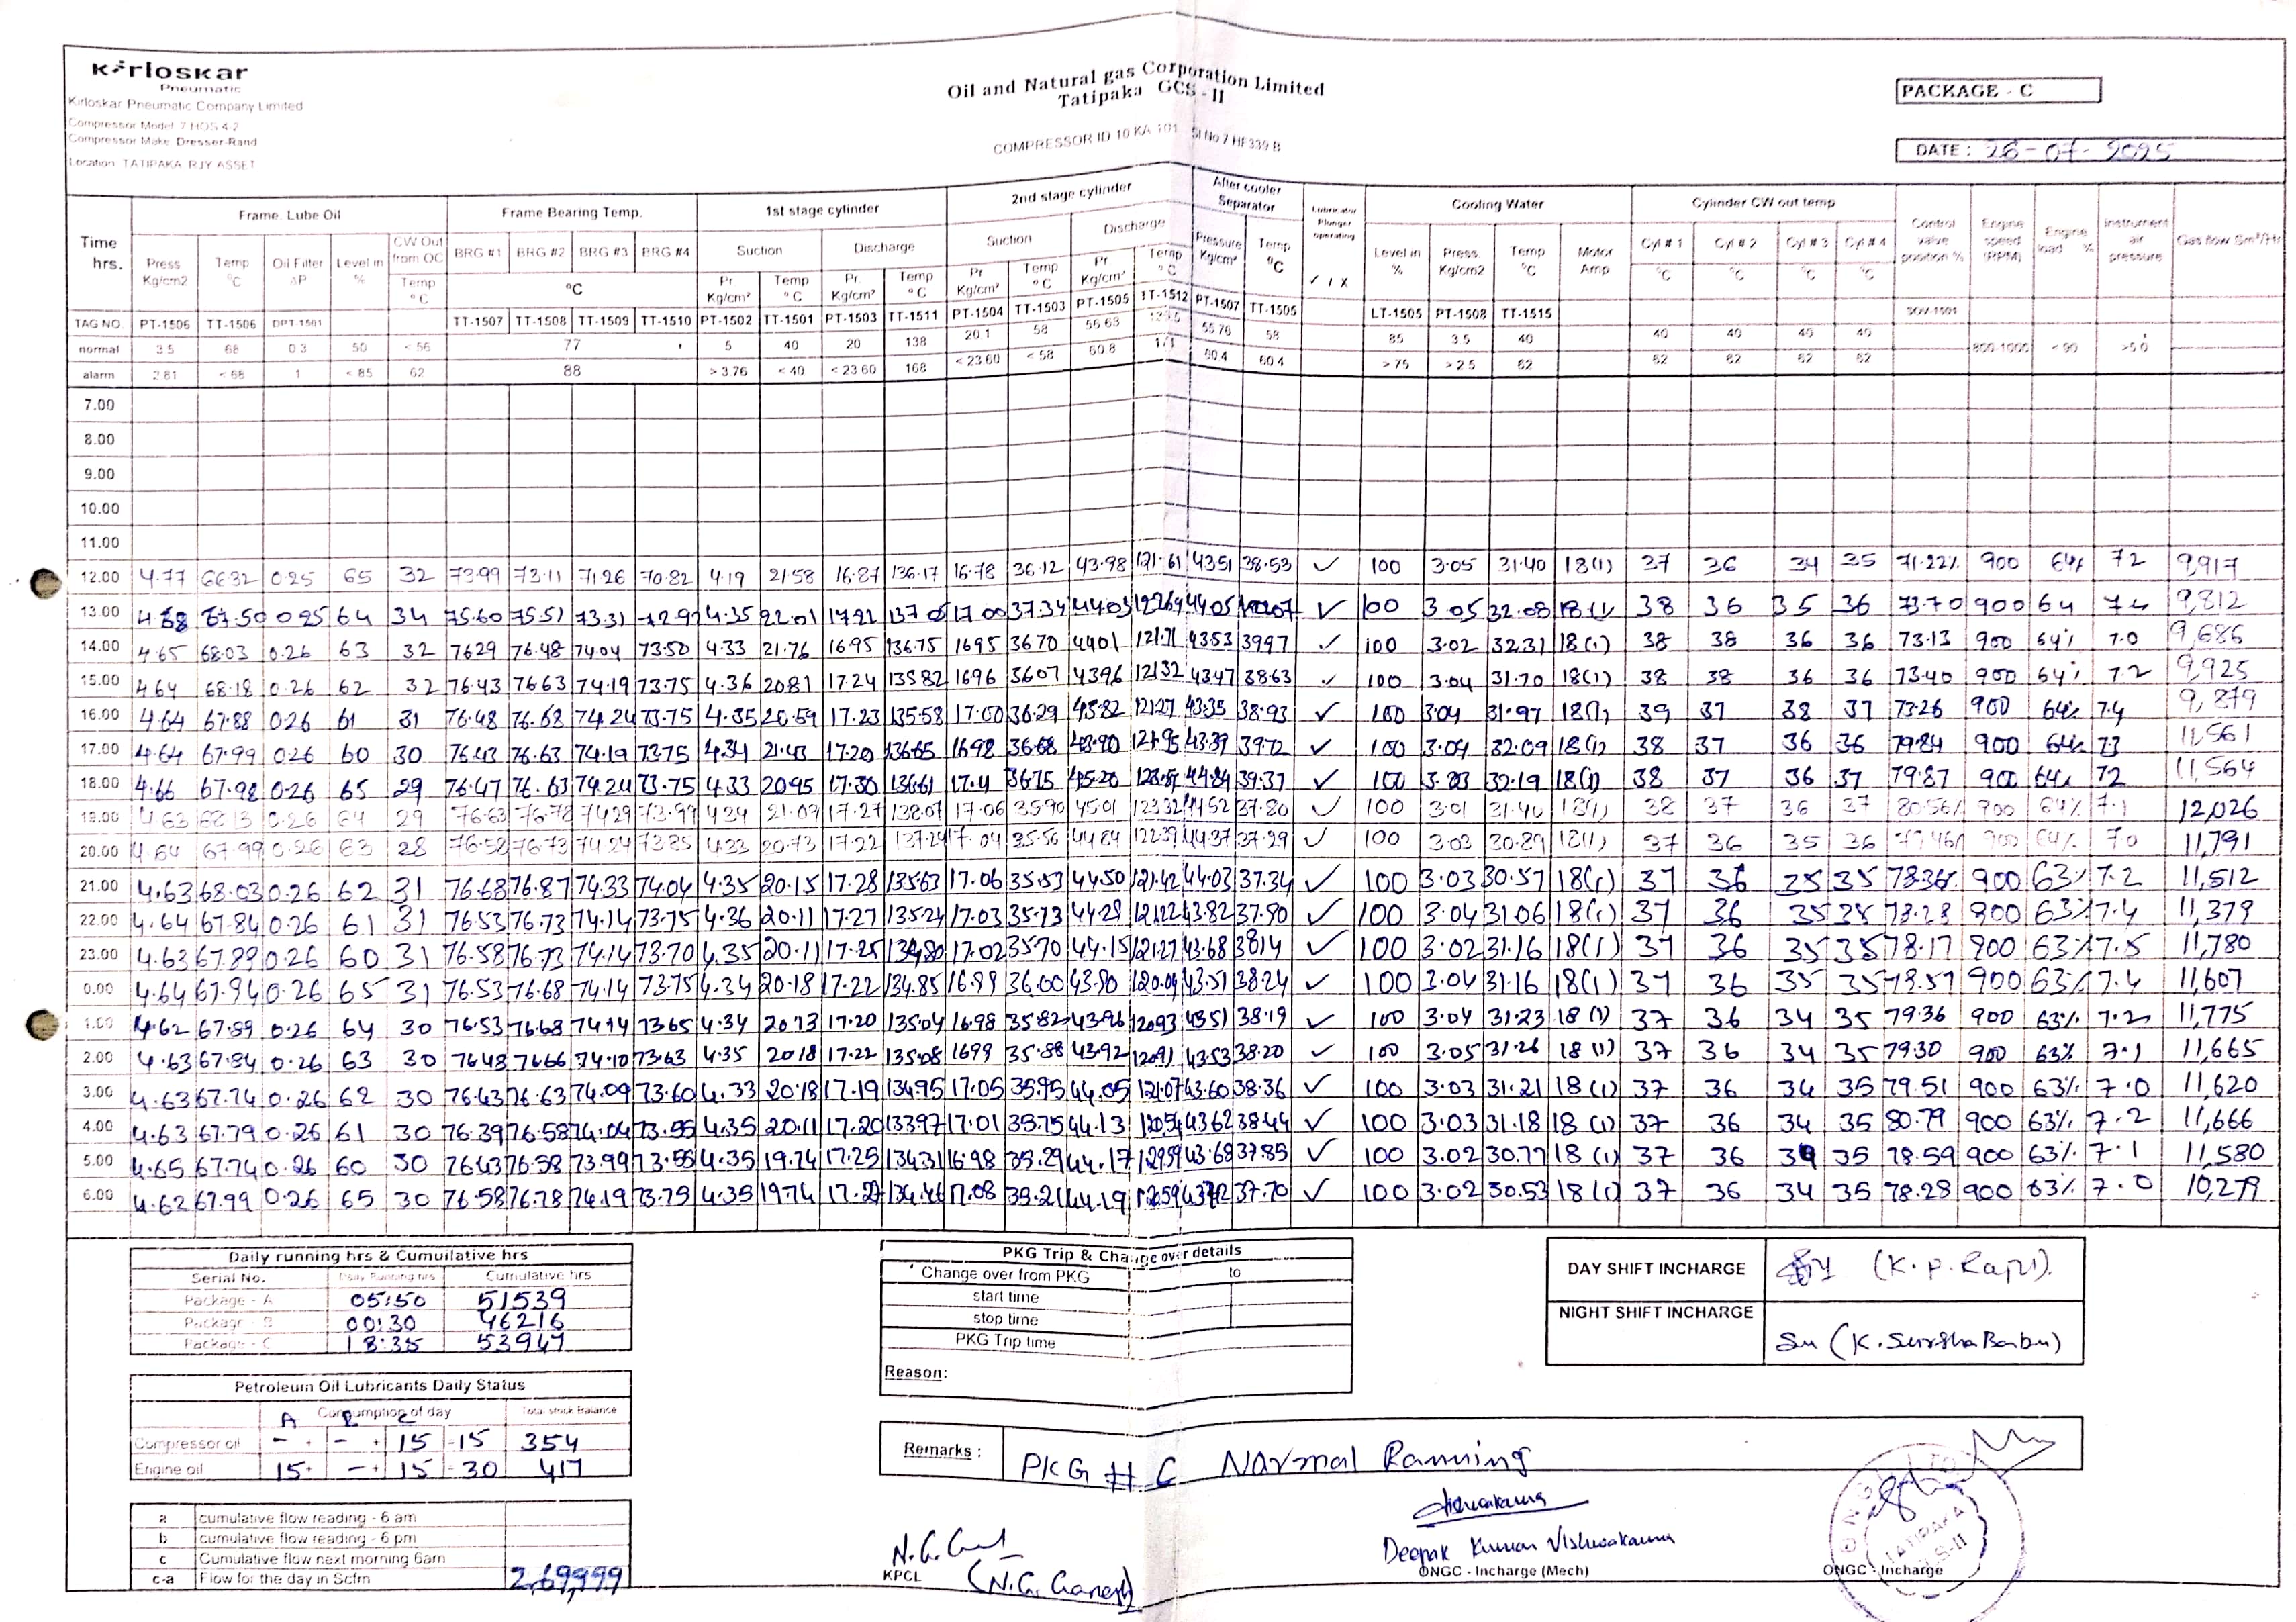 Kirloskar
Pneumatic
Kirloskar Pneumatic Company Limited
Compressor Model 7 HOS 4-2
Compressor Make Dresser-Rand
Location TATIPAKA RJY ASSET
Oil and Natural gas Corporation Limited
Tatipaka GCS - II
COMPRESSOR ID 10 KA 101 Sl No 7 HF339 B
PACKAGE - C
DATE : 26-07-2025
Time hrs. Frame. Lube Oil Frame Bearing Temp. 1st stage cylinder 2nd stage cylinder After cooler Separator Lubricator Plunger operating Cooling Water Cylinder CW out temp Control valve position % Engine speed (RPM) Engine load % instrument air pressure Gas flow Sm³/Hr
CW Out from OC BRG #1 BRG #2 BRG #3 BRG #4 Suction Discharge Suction Discharge
Press Kg/cm2 Temp °C Oil Filter ΔP Level in % Temp °C °C Pr Kg/cm² Temp °C Pr. Kg/cm² Temp °C Pr Kg/cm² Temp °C Pr Kg/cm² Temp °C Pressure Kg/cm² Temp °C ✓ / X Level in % Press Kg/cm2 Temp °C Motor Amp Cyl # 1 °C Cyl # 2 °C Cyl # 3 °C Cyl # 4 °C
TAG NO. PT-1506 TT-1506 DPT-1501 TT-1507 TT-1508 TT-1509 TT-1510 PT-1502 TT-1501 PT-1503 TT-1511 PT-1504 TT-1503 PT-1505 TT-1512 PT-1507 TT-1505 LT-1505 PT-1508 TT-1515 SOV-1501
normal 3.5 68 0.3 50 < 56 77 5 40 20 138 20.1 58 56.63 55.76 58 85 3.5 40 40 40 40 40 800-1000 < 90 >5.0
alarm 2.81 < 68 1 < 85 62 88 > 3.76 < 40 < 23.60 168 < 23.60 < 58 60.8 171 60.4 60.4 > 75 > 2.5 62 62 62 62 62
7.00
8.00
9.00
10.00
11.00
12.00 4.77 66.32 0.25 65 32 73.99 73.11 71.26 70.82 4.19 21.58 16.87 136.17 16.78 36.12 43.98 121.61 43.51 38.53 ✓ 100 3.05 31.40 18(1) 37 36 34 35 71.22% 900 64% 72 9,917
13.00 4.68 67.50 0.25 64 34 75.60 75.51 73.31 72.92 4.35 22.01 17.22 137.05 17.00 37.34 44.03 122.64 44.05 ✓ 100 3.05 32.08 18(1) 38 36 35 36 73.70 900 64 7.4 9,812
14.00 4.65 68.03 0.26 63 32 76.29 76.48 74.04 73.50 4.33 21.76 16.95 136.75 16.95 36.70 44.01 121.71 43.53 39.97 ✓ 100 3.02 32.31 18(1) 38 38 36 36 73.13 900 64% 7.0 9,686
15.00 4.64 68.18 0.26 62 32 76.43 76.63 74.19 73.75 4.36 20.81 17.24 135.82 16.96 36.07 43.96 121.32 43.47 38.63 ✓ 100 3.04 31.70 18(1) 38 38 36 36 73.40 900 64% 7.2 9,925
16.00 4.64 67.88 0.26 61 31 76.48 76.68 74.24 73.75 4.35 20.59 17.23 135.58 17.00 36.29 43.82 121.27 43.35 38.93 ✓ 100 3.04 31.97 18(1) 39 37 38 37 73.26 900 64% 7.4 9,879
17.00 4.64 67.99 0.26 60 30 76.43 76.63 74.19 73.75 4.34 21.43 17.20 136.65 16.98 36.68 43.90 121.95 43.39 39.72 ✓ 100 3.04 32.09 18(1) 38 37 36 36 79.84 900 64% 73 11,561
18.00 4.66 67.98 0.26 65 29 76.47 76.63 74.24 73.75 4.33 20.95 17.30 136.61 17.11 36.75 45.20 123.51 44.84 39.37 ✓ 100 3.03 32.19 18(1) 38 37 36 37 79.87 900 64% 72 11,564
19.00 4.63 68.13 0.26 64 29 76.63 76.78 74.29 73.99 4.34 21.09 17.27 138.07 17.06 35.90 45.01 123.32 44.52 37.80 ✓ 100 3.01 31.40 18(1) 38 37 36 37 80.56% 900 64% 7.1 12,026
20.00 4.64 67.99 0.26 63 28 76.58 76.73 74.24 73.85 4.33 20.73 17.22 137.24 17.04 35.56 44.84 122.39 44.37 37.29 ✓ 100 3.03 30.89 18(1) 37 36 35 36 79.46% 900 64% 7.0 11,791
21.00 4.63 68.03 0.26 62 31 76.68 76.87 74.33 74.04 4.35 20.15 17.28 135.63 17.06 35.53 44.50 121.42 44.03 37.34 ✓ 100 3.03 30.57 18(1) 37 36 35 35 78.36% 900 63% 7.2 11,512
22.00 4.64 67.84 0.26 61 31 76.53 76.73 74.14 73.75 4.36 20.11 17.27 135.24 17.03 35.73 44.29 121.22 43.82 37.90 ✓ 100 3.04 31.06 18(1) 37 36 35 35 78.28 900 63% 7.4 11,379
23.00 4.63 67.89 0.26 60 31 76.58 76.73 74.14 73.70 4.35 20.11 17.25 134.80 17.02 35.70 44.15 121.27 43.68 38.14 ✓ 100 3.02 31.16 18(1) 37 36 35 35 78.17 900 63% 7.5 11,780
0.00 4.64 67.94 0.26 65 31 76.53 76.68 74.14 73.75 4.34 20.18 17.22 134.85 16.99 36.00 43.90 120.09 43.51 38.24 ✓ 100 3.04 31.16 18(1) 37 36 35 35 78.57 900 63% 7.4 11,607
1.00 4.62 67.89 0.26 64 30 76.53 76.68 74.14 73.65 4.34 20.13 17.20 135.04 16.98 35.82 43.96 120.93 43.51 38.19 ✓ 100 3.04 31.23 18(1) 37 36 34 35 79.36 900 63% 7.2 11,775
2.00 4.63 67.84 0.26 63 30 76.48 76.66 74.10 73.63 4.35 20.18 17.22 135.08 16.99 35.88 43.92 120.91 43.53 38.20 ✓ 100 3.05 31.26 18(1) 37 36 34 35 79.30 900 63% 7.1 11,665
3.00 4.63 67.74 0.26 62 30 76.43 76.63 74.09 73.60 4.33 20.18 17.19 134.95 17.05 35.95 44.05 121.07 43.60 38.36 ✓ 100 3.03 31.21 18(1) 37 36 34 35 79.51 900 63% 7.0 11,620
4.00 4.63 67.79 0.26 61 30 76.39 76.58 74.04 73.55 4.35 20.11 17.20 133.97 17.01 35.75 44.13 120.54 43.62 38.44 ✓ 100 3.03 31.18 18(1) 37 36 34 35 80.79 900 63% 7.2 11,666
5.00 4.65 67.74 0.26 60 30 76.43 76.58 73.99 73.55 4.35 19.74 17.25 134.31 16.98 35.29 44.17 43.68 37.85 ✓ 100 3.02 30.77 18(1) 37 36 34 35 78.59 900 63% 7.1 11,580
6.00 4.62 67.99 0.26 65 30 76.58 76.78 74.19 73.75 4.35 19.74 17.27 134.46 17.08 35.21 44.19 43.72 37.70 ✓ 100 3.02 30.53 18(1) 37 36 34 35 78.28 900 63% 7.0 10,279
Daily running hrs & Cumuilative hrs
Serial No. Daily Running hrs Cumulative hrs
Package - A 05:50 51539
Package - B 00:30 46216
Package - C 18:35 53947
PKG Trip & Change over details
Change over from PKG to
start time
stop time
PKG Trip time
Reason:
DAY SHIFT INCHARGE (K.P. Raju).
NIGHT SHIFT INCHARGE (K. Suresha Babu)
Petroleum Oil Lubricants Daily Status
Consumption of day Total stock Balance
A B C
Compressor oil - + - + 15 - 15 354
Engine oil 15 + - + 15 = 30 417
Remarks : PKG # C Normal Running
a cumulative flow reading - 6 am
b cumulative flow reading - 6 pm
c Cumulative flow next morning 6am
c-a Flow for the day in Scfm 2,69,999
N.G. Ganesh
KPCL (N.G. Ganesh)
Deepak Kumar Vishwakarma
ONGC - Incharge (Mech)
TATIPAKA
ONGC - Incharge